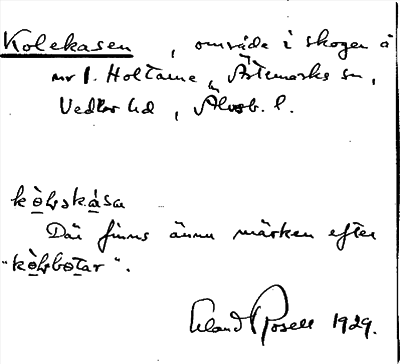 Kolekasen, område i skogen å
nr 1. Holtarne, Ärtemarks sn,
Vedbo hd, Älvsb. l.
kò̱ləskà̱sa
Där finns ännu märken efter
"kò̱lbo̱tar".
Erland Rosell 1929.